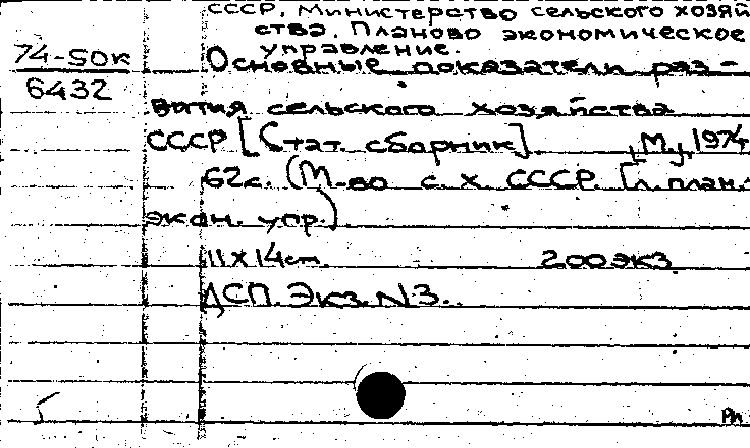 СССР. Министерство сельского хозяй
ства. Планово экономическое
управление.
74-50к
6432
Основные показатели раз-
вития сельского хозяйства
СССР [Стат. сборник]. М., 1974
62с. (М-во с. х. СССР. Гл. план.-
экон. упр.)
11х14см. 200экз
ДСП. Экз. N3.